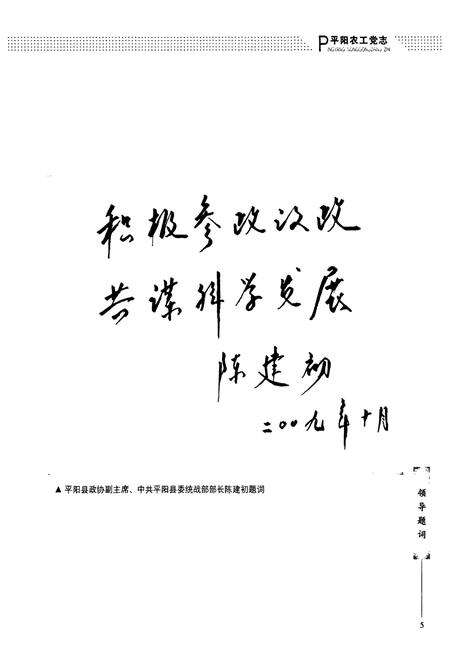 平阳农工党志
PINGYANG NONGGONGDANG ZHI
积极参政议政
共谋科学发展
陈建初
二〇〇九年十月
▲ 平阳县政协副主席、中共平阳县委统战部部长陈建初题词
领导题词
5